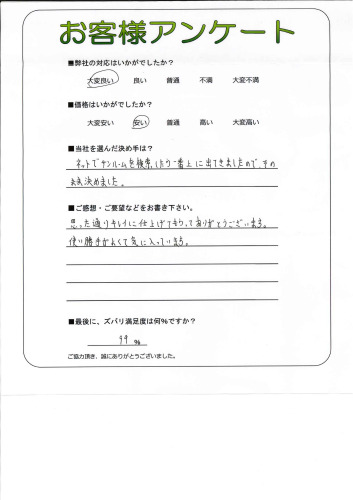 お客様アンケート
■弊社の対応はいかがでしたか？
大変良い 良い 普通 不満 大変不満
■価格はいかがでしたか？
大変安い 安い 普通 高い 大変高い
■当社を選んだ決め手は？
ネットでサンルームを検索したら一番上に出てきましたので、その
まま決めました。
■ご感想・ご要望などをお書き下さい。
思った通りキレイに仕上げて下さってありがとうございます。
使い勝手がよくて気に入っています。
■最後に、ズバリ満足度は何％ですか？
99 %
ご協力頂き、誠にありがとうございました。